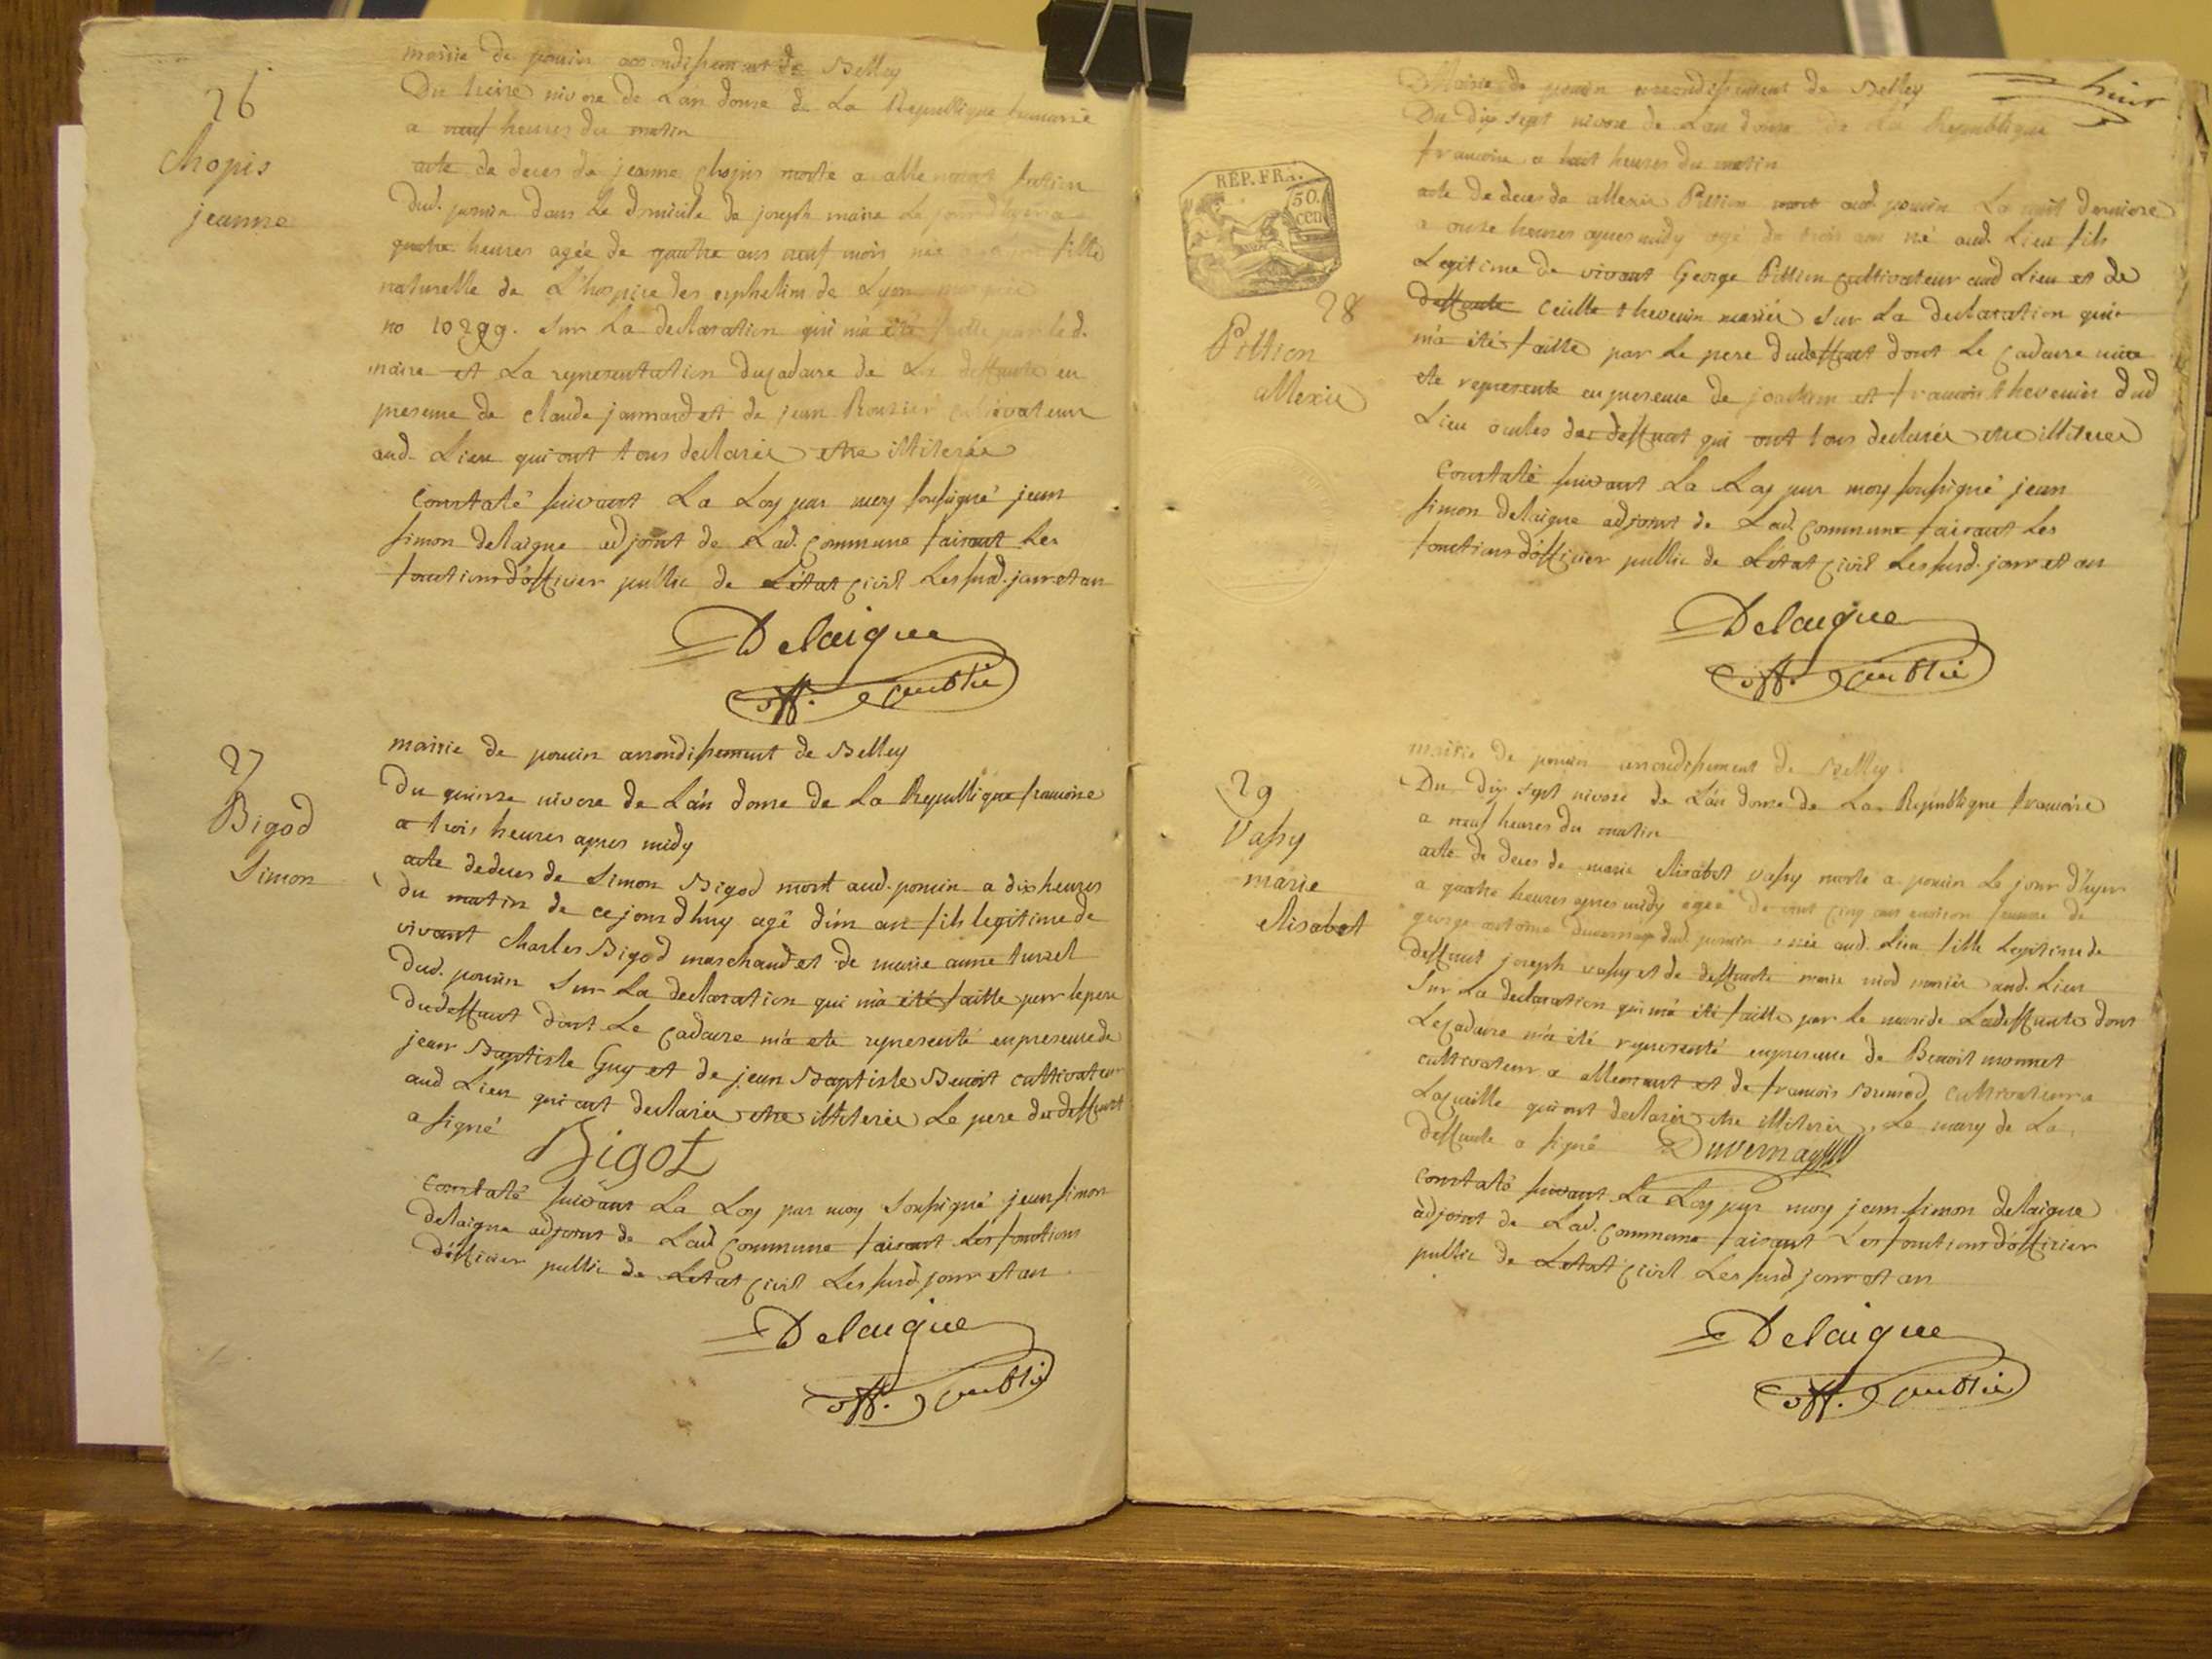 26
Chopis
jeanne
mairie de poncin arrondissement de Belley
Du treize nivose de L'an douze de La Republique francoise
a neuf heures du matin
acte de deces de jeanne chopis morte a allement
dud. poncin dans Le domicile de joseph maire Le jour d'hyer a
quatre heures agée de quattre ans neuf mois née fille
naturelle de L'hospice des orphelins de Lyon
no 10299. sur La declaration qui m'a été faitte par led.
maire et La representation du cadavre de La deffunte en
presence de claude jammard et de jean Rouzier cultivateurs
aud. Lieu qui ont tous declarés etre illiterés
Constaté suivant La Loy par moy soussigné jean
simon delaigue adjoint de Lad. Commune faisant Les
fonctions d'officier public de L'état civil Les susd. jour et an
Delaigue
off. public
27
Bigod
Simon
mairie de poncin arrondissement de Belley
Du quinze nivose de L'an douze de La Republique francoise
a trois heures apres midy
acte de deces de Simon Bigod mort aud. poncin a dix heures
du matin de ce jour d'huy agé d'un an fils legitime de
vivant charles Bigod marchand et de marie anne turrel
dud. poncin sur La declaration qui m'a été faitte par le pere
dud deffunt dont Le cadavre m'a ete representé en presence de
jean Baptiste Guy et de jean Baptiste Benoit cultivateur
aud Lieu qui ont declarés etre illiterés Le pere du deffunt
a signé
Bigot
Constaté suivant La Loy par moy soussigné jean simon
delaigue adjoint de Lad Commune faisant Les fonctions
d'officier public de L'etat civil Les susd. jour et an
Delaigue
off. public
huit
REP. FRA.
50.
cen
28
Pittion
allexis
Mairie de poncin arrondissement de Belley
Du dix sept nivose de L'an douze de La Republique
francoise a huit heures du matin
acte de deces de allexis Pittion mort aud. poncin La nuit derniere
a onze heures apres midy agé de trois ans né aud. Lieu fils
Legitime de vivant George Pittion cultivateur aud Lieu et de
deffunte Cecille thevenin mariés sur La declaration qui
m'a été faitte par Le pere dud deffunt dont Le Cadavre m'a
ete representé en presence de joachim et francois thevenin dud
Lieu oncles du deffunt qui ont tous declarés etre illiterés
Constaté suivant La Loy par moy soussigné jean
simon delaigue adjoint de Lad. Commune faisant Les
fonctions d'officier public de L'etat civil Les susd. jour et an
Delaigue
off. public
29
Vassy
marie
elisabet
mairie de poncin arrondissement de Belley.
Du dix sept nivose de L'an douze de La Republique francoise
a neuf heures du matin
acte de deces de marie elisabet vassy morte a poncin Le jour d'hyer
a quatre heures apres midy agée de vint cinq ans environ femme de
george antoine duvernay dud. poncin née aud. Lieu fille Legitime de
deffunt joseph vassy et de deffunte marie mariés aud. Lieu
sur La declaration qui m'a été faitte par Le mari de La deffunte dont
Le cadavre m'a été representé en presence de Benoit monnet
cultivateur a allement et de francois cultivateur a
Lacueille qui ont declarés etre illiterés. Le mary de La
deffunte a signé Duvernay
Constaté suivant La Loy par moy jean simon delaigue
adjoint de Lad. Commune faisant Les fonctions d'officier
public de L'etat civil Les susd jour et an
Delaigue
off. public